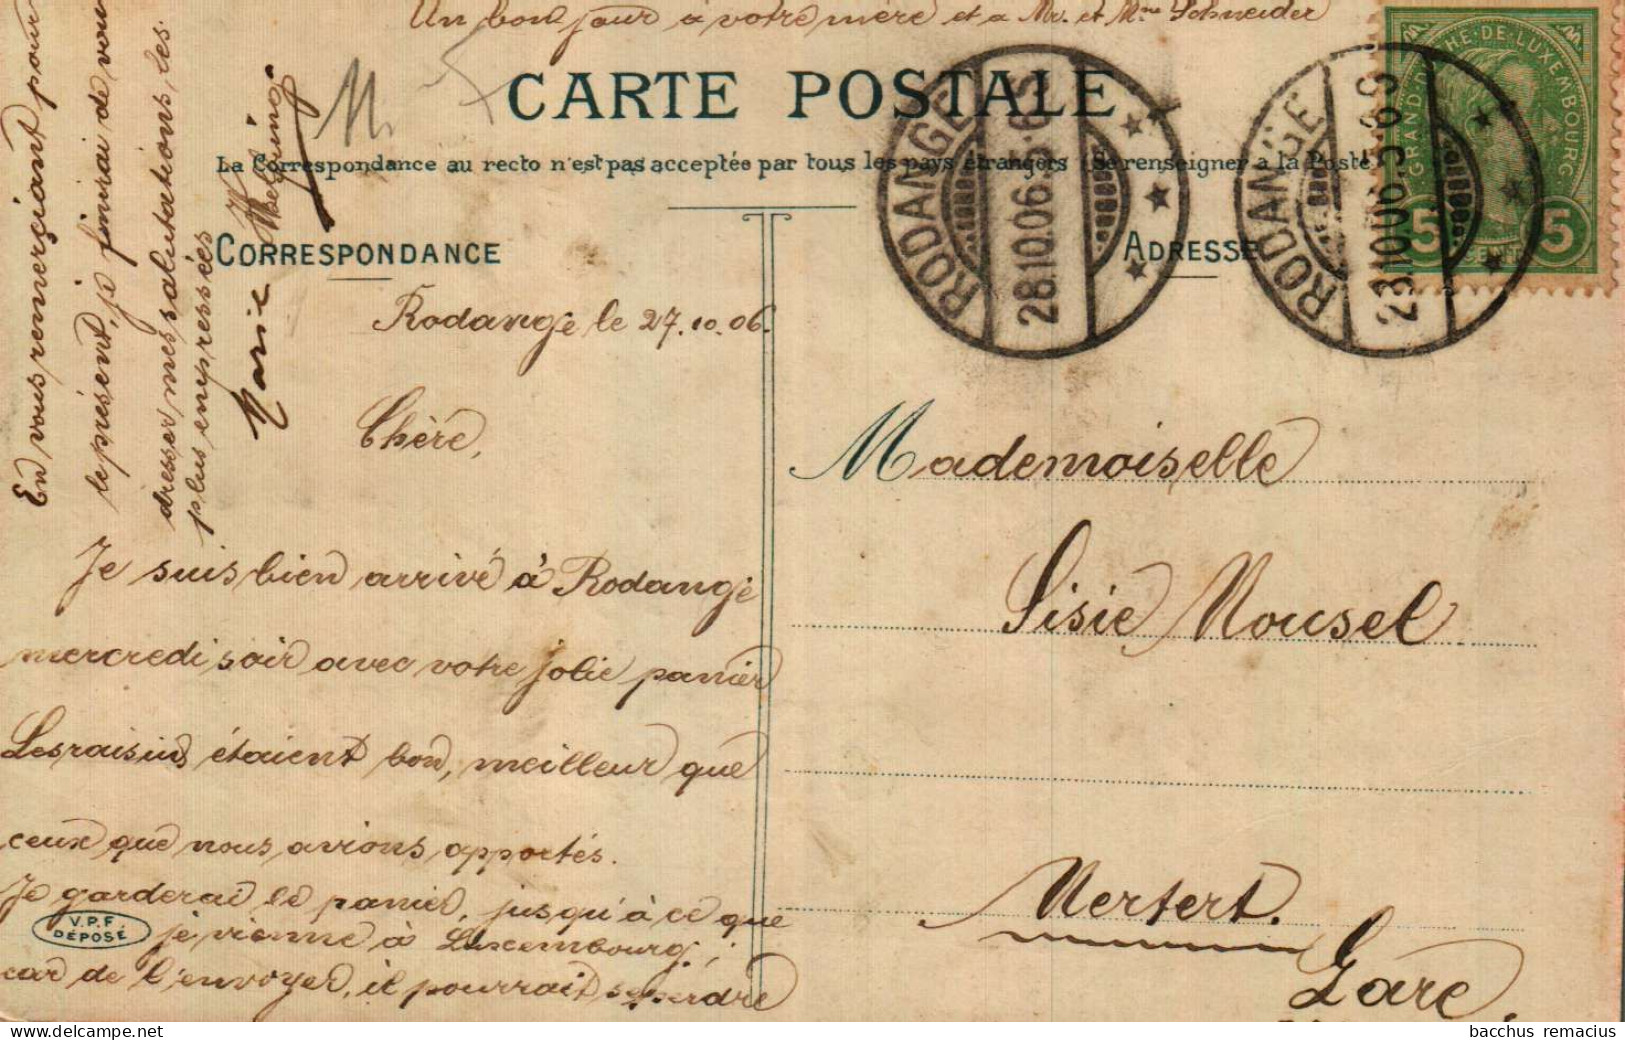 Un bonjour à votre mère et a Mr. et Mme Schneider
CARTE POSTALE
La Correspondance au recto n'est pas acceptée par tous les pays étrangers (Se renseigner a la Poste)
CORRESPONDANCE
ADRESSE
RODANGE
28.10.06.5-6S
RODANGE
28.10.06.5-6S
GRAND-DUCHE-DE-LUXEMBOURG
5 5
Rodange le 27.10.06.
Chère,
Je suis bien arrivé à Rodange
mercredi soir avec votre jolie panier
Les raisins étaient bon, meilleur que
ceux que nous avions apportés.
Je garderai le panier, jusqu'à ce que
je vienne à Luxembourg;
car de l'envoyer, il pourrait se perdre
V.P.F.
DÉPOSÉ
En vous remerciant pour
le présent, je finirai de vous
dresser mes salutations les
plus empressées
Marie
Mademoiselle
Sisie Mousel
Mertert.
Gare
bacchus remacius